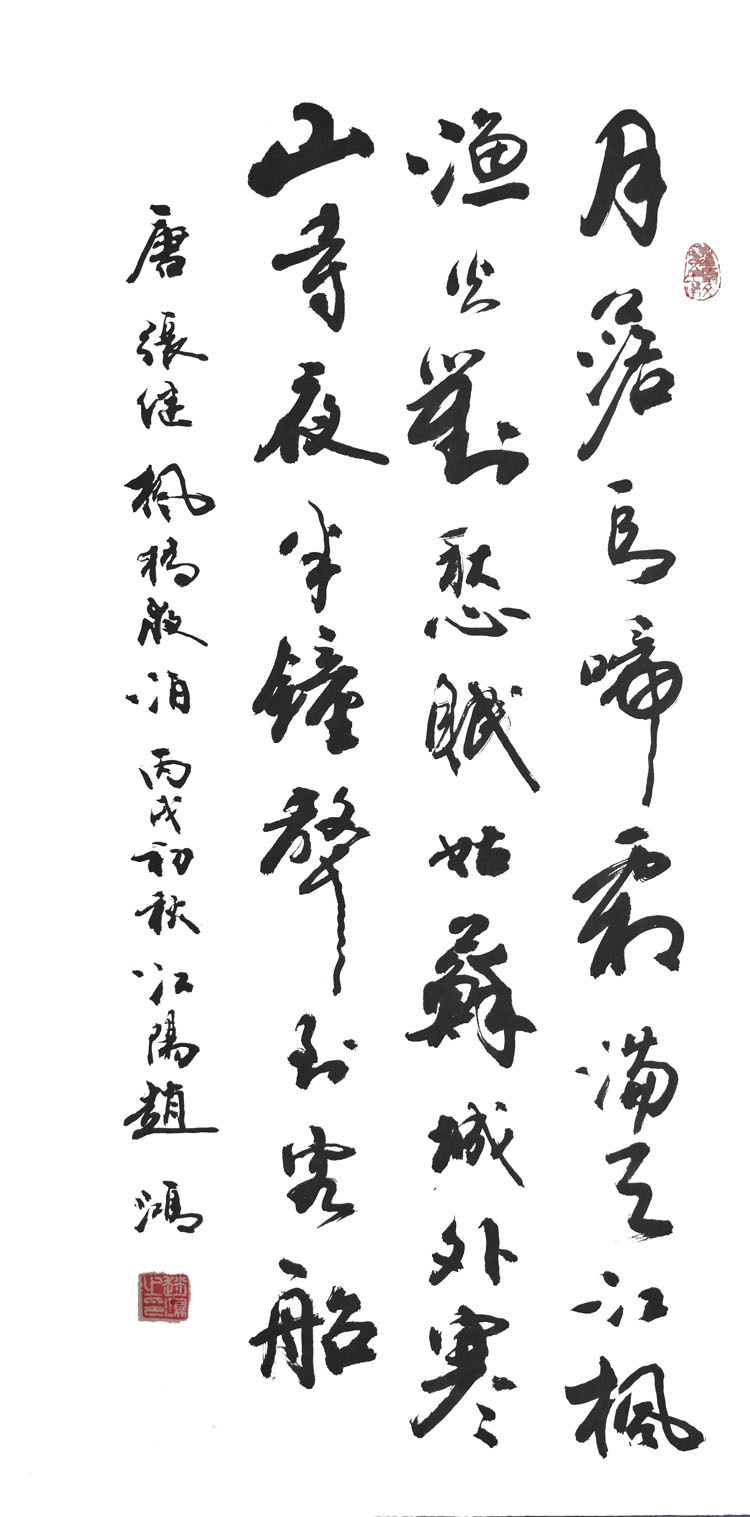 月落烏啼霜滿天江楓
漁火對愁眠姑蘇城外寒
山寺夜半鐘聲到客船
唐張继楓橋夜泊丙戌初秋江陽趙鴻